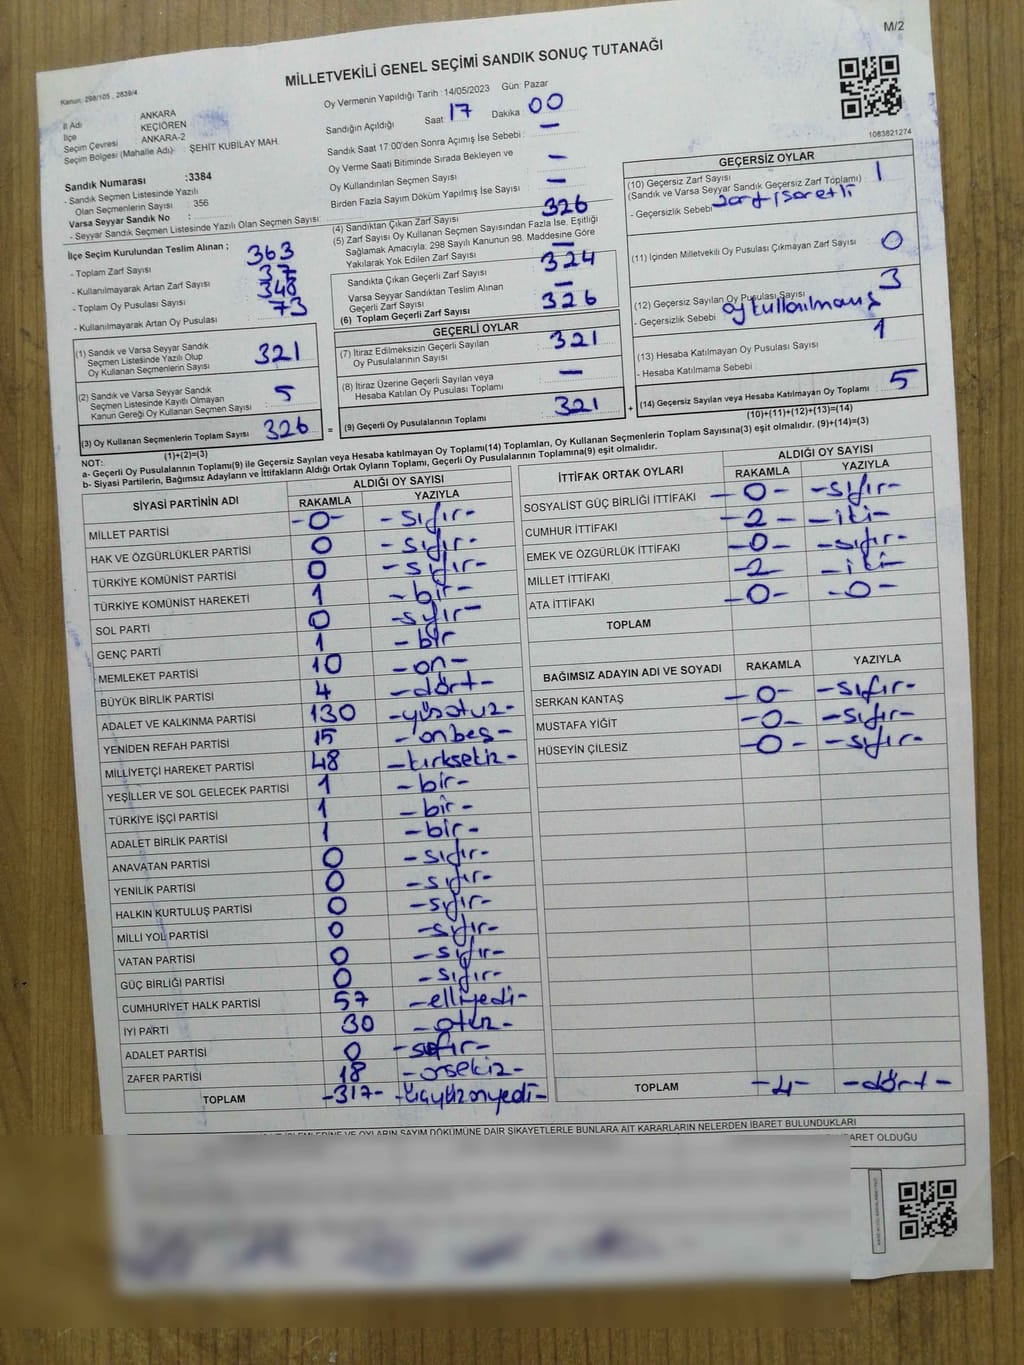 M/2
MİLLETVEKİLİ GENEL SEÇİMİ SANDIK SONUÇ TUTANAĞI
Kanun: 298/105 , 2839/4
Oy Vermenin Yapıldığı Tarih : 14/05/2023 Gün: Pazar
İl Adı ANKARA
İlçe KEÇİÖREN
Seçim Çevresi ANKARA-2
Seçim Bölgesi (Mahalle Adı): ŞEHİT KUBİLAY MAH.
Sandık Numarası :3384
- Sandık Seçmen Listesinde Yazılı
Olan Seçmenlerin Sayısı : 356
Varsa Seyyar Sandık No :
- Seyyar Sandık Seçmen Listesinde Yazılı Olan Seçmen Sayısı :
Sandığın Açıldığı Saat : 17 Dakika : 00
Sandık Saat 17:00'den Sonra Açımış İse Sebebi : —
Oy Verme Saati Bitiminde Sırada Bekleyen ve
Oy Kullandırılan Seçmen Sayısı —
Birden Fazla Sayım Döküm Yapılmış İse Sayısı —
1083821274
İlçe Seçim Kurulundan Teslim Alınan ;
- Toplam Zarf Sayısı 363
- Kullanılmayarak Artan Zarf Sayısı 37
- Toplam Oy Pusulası Sayısı 348
- Kullanılmayarak Artan Oy Pusulası : 73
(1) Sandık ve Varsa Seyyar Sandık
Seçmen Listesinde Yazılı Olup
Oy Kullanan Seçmenlerin Sayısı 321
(2) Sandık ve Varsa Seyyar Sandık
Seçmen Listesinde Kayıtlı Olmayan
Kanun Gereği Oy Kullanan Seçmen Sayısı : 5
(3) Oy Kullanan Seçmenlerin Toplam Sayısı 326
(1)+(2)=(3)
(4) Sandıktan Çıkan Zarf Sayısı 326
(5) Zarf Sayısı Oy Kullanan Seçmen Sayısından Fazla İse, Eşitliği
Sağlamak Amacıyla: 298 Sayılı Kanunun 98. Maddesine Göre
Yakılarak Yok Edilen Zarf Sayısı —
Sandıkta Çıkan Geçerli Zarf Sayısı 324
Varsa Seyyar Sandıktan Teslim Alınan
Geçerli Zarf Sayısı —
(6) Toplam Geçerli Zarf Sayısı 326
GEÇERLİ OYLAR
(7) İtiraz Edilmeksizin Geçerli Sayılan
Oy Pusulalarının Sayısı : 321
(8) İtiraz Üzerine Geçerli Sayılan veya
Hesaba Katılan Oy Pusulası Toplamı : —
= (9) Geçerli Oy Pusulalarının Toplamı 321 +
GEÇERSİZ OYLAR
(10) Geçersiz Zarf Sayısı
(Sandık ve Varsa Seyyar Sandık Geçersiz Zarf Toplamı) 1
- Geçersizlik Sebebi zarf işaretli
(11) İçinden Milletvekili Oy Pusulası Çıkmayan Zarf Sayısı 0
(12) Geçersiz Sayılan Oy Pusulası Sayısı 3
- Geçersizlik Sebebi oy kullanılmamış
(13) Hesaba Katılmayan Oy Pusulası Sayısı 1
- Hesaba Katılmama Sebebi :
(14) Geçersiz Sayılan veya Hesaba Katılmayan Oy Toplamı : 5
(10)+(11)+(12)+(13)=(14)
NOT:
a- Geçerli Oy Pusulalarının Toplamı(9) ile Geçersiz Sayılan veya Hesaba katılmayan Oy Toplamı(14) Toplamları, Oy Kullanan Seçmenlerin Toplam Sayısına(3) eşit olmalıdır. (9)+(14)=(3)
b- Siyasi Partilerin, Bağımsız Adayların ve İttifakların Aldığı Ortak Oyların Toplamı, Geçerli Oy Pusulalarının Toplamına(9) eşit olmalıdır.
SİYASİ PARTİNİN ADI ALDIĞI OY SAYISI
RAKAMLA YAZIYLA
MİLLET PARTİSİ -0- -sıfır-
HAK VE ÖZGÜRLÜKLER PARTİSİ 0 -sıfır-
TÜRKİYE KOMÜNİST PARTİSİ 0 -sıfır-
TÜRKİYE KOMÜNİST HAREKETİ 1 -bir-
SOL PARTİ 0 -sıfır-
GENÇ PARTİ 1 -bir
MEMLEKET PARTİSİ 10 -on-
BÜYÜK BİRLİK PARTİSİ 4 -dört-
ADALET VE KALKINMA PARTİSİ 130 -yüzotuz-
YENİDEN REFAH PARTİSİ 15 -onbeş-
MİLLİYETÇİ HAREKET PARTİSİ 48 -kırksekiz-
YEŞİLLER VE SOL GELECEK PARTİSİ 1 -bir-
TÜRKİYE İŞÇİ PARTİSİ 1 -bir-
ADALET BİRLİK PARTİSİ 1 -bir-
ANAVATAN PARTİSİ 0 -sıfır-
YENİLİK PARTİSİ 0 -sıfır-
HALKIN KURTULUŞ PARTİSİ 0 -sıfır-
MİLLİ YOL PARTİSİ 0 -sıfır-
VATAN PARTİSİ 0 -sıfır-
GÜÇ BİRLİĞİ PARTİSİ 0 -sıfır-
CUMHURİYET HALK PARTİSİ 57 -elliyedi-
İYİ PARTİ 30 -otuz-
ADALET PARTİSİ 0 -sıfır-
ZAFER PARTİSİ 18 -onsekiz-
TOPLAM -317- -üçyüzonyedi-
İTTİFAK ORTAK OYLARI ALDIĞI OY SAYISI
RAKAMLA YAZIYLA
SOSYALİST GÜÇ BİRLİĞİ İTTİFAKI -0- -sıfır-
CUMHUR İTTİFAKI -2- -iki-
EMEK VE ÖZGÜRLÜK İTTİFAKI -0- -sıfır-
MİLLET İTTİFAKI -2- -iki-
ATA İTTİFAKI -0- -0-
TOPLAM
BAĞIMSIZ ADAYIN ADI VE SOYADI RAKAMLA YAZIYLA
SERKAN KANTAŞ -0- -sıfır-
MUSTAFA YİĞİT -0- -sıfır-
HÜSEYİN ÇİLESİZ -0- -sıfır-
TOPLAM -4- -dört-
OYLARIN SAYIM DÖKÜMÜNE DAİR ŞİKAYETLERLE BUNLARA AİT KARARLARIN NELERDEN İBARET BULUNDUKLARI
OLDUĞU